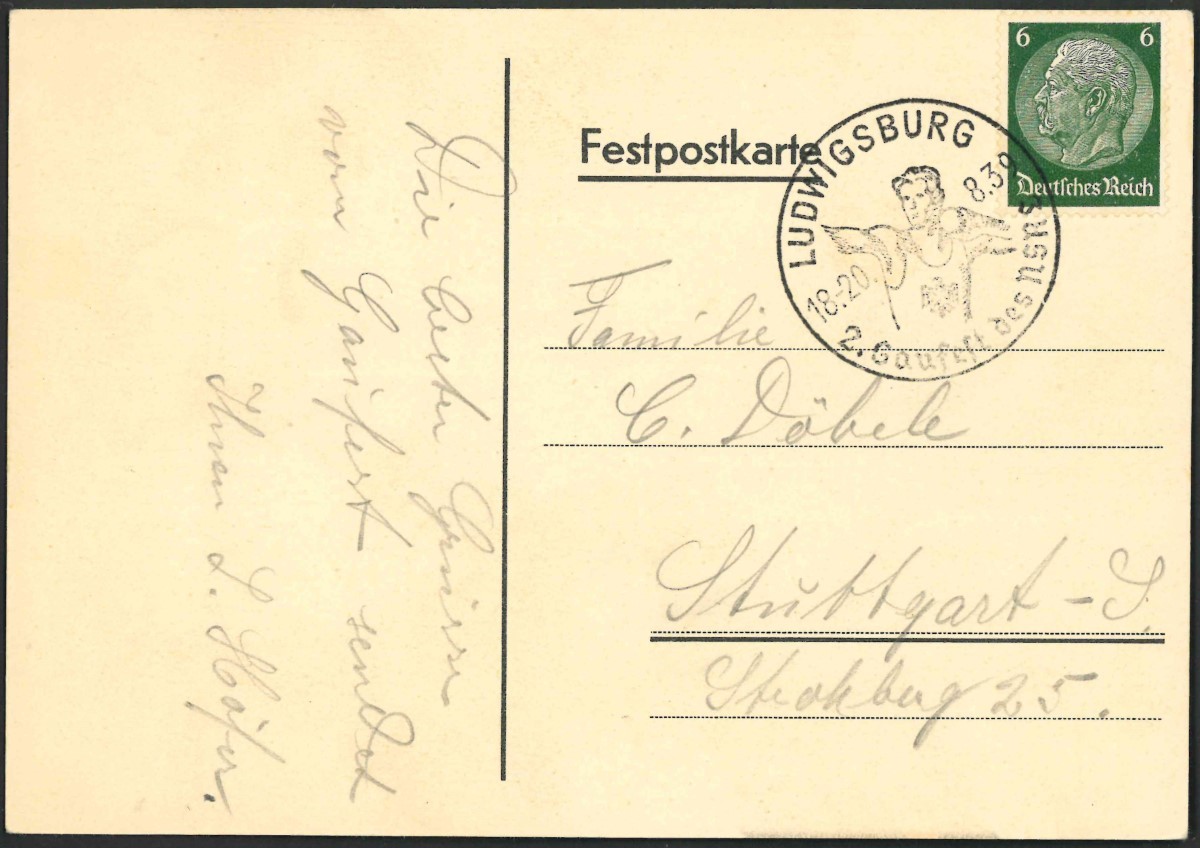 Festpostkarte
6 6
Deutsches Reich
LUDWIGSBURG
18.-20. 8.39
2. Gaufest des NSRL
Familie
C. Döbele
Stuttgart - S.
25.
Die besten Grüsse
vom Gaufest sendet
Ihnen L. Höfer.